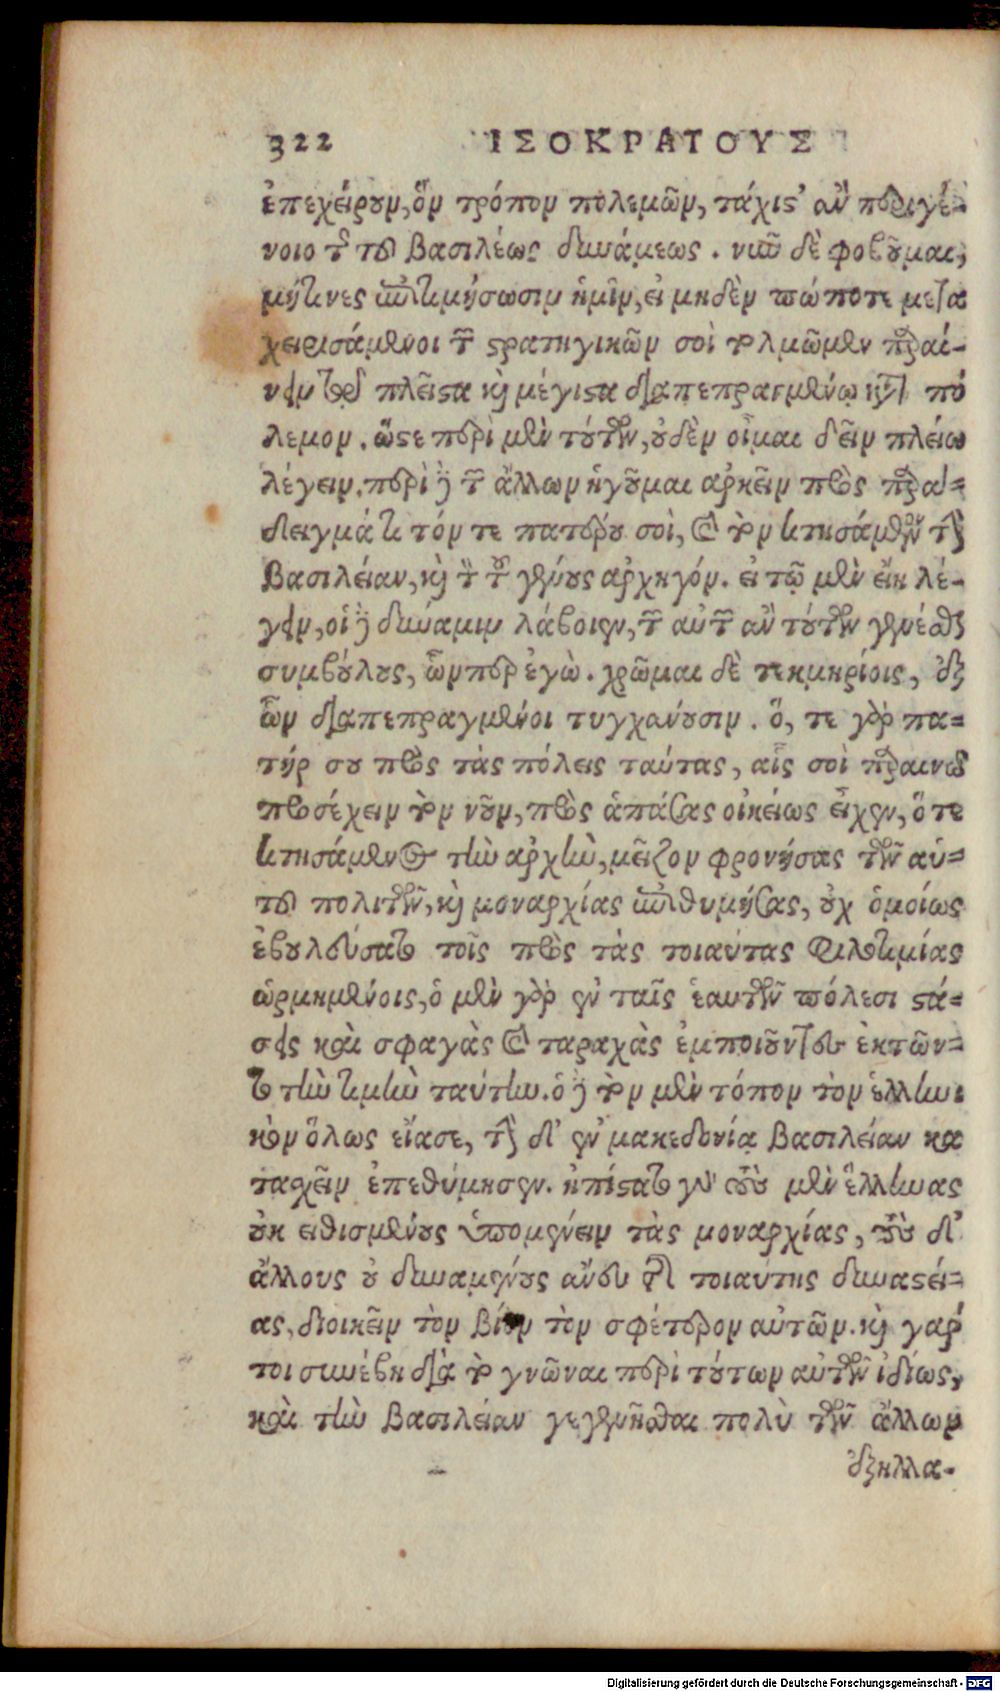 322 ΙΣΟΚΡΑΤΟΥΣ
ἐπεχείρουν, ὃν τρόπον πολεμῶν, τάχιστ' ἂν περιγέ-
νοιο τῆς τοῦ βασιλέως δυνάμεως. νῦν δὲ φοβοῦμαι,
μήτινες ἐπιτιμήσωσιν ἡμῖν, εἰ μηδὲν πώποτε μετα
χειρισάμενοι τῶν στρατηγικῶν σοὶ τολμῶμεν παραί-
νειν τῷ πλεῖστα καὶ μέγιστα διαπεπραγμένῳ κατὰ πό
λεμον. ὥστε περὶ μὲν τούτων, οὐδὲν οἶμαι δεῖν πλείω
λέγειν. περὶ δὲ τῶν ἄλλων ἡγοῦμαι ἀρκεῖν πρὸς παρα-
δειγμάτι τόν τε πατέρου σοὶ, καὶ τὸν κτησάμενον τὴν
βασιλείαν, καὶ τὸν τοῦ γένους ἀρχηγόν. εἰ τῷ μὲν εἴη λέ-
γειν, οἱ δὲ δύναμιν λάβοιεν, τῶν αὐτῶν ἂν τούτων γενέσθαι
συμβούλους, ὧνπερ ἐγὼ. χρῶμαι δὲ τεκμηρίοις, ἐξ
ὧν διαπεπραγμένοι τυγχάνουσιν. ὅ, τε γὰρ πα-
τήρ σου πρὸς τὰς πόλεις ταύτας, αἷς σοὶ παραινῶ
προσέχειν τὸν νοῦν, πρὸς ἁπάσας οἰκείως εἶχεν, ὅ τε
κτησάμενος τὴν ἀρχὴν, μεῖζον φρονήσας τῶν αὑ-
τοῦ πολιτῶν, καὶ μοναρχίας ἐπιθυμήσας, οὐχ ὁμοίως
ἐβουλεύσατο τοῖς πρὸς τὰς τοιαύτας φιλοτιμίας
ὡρμημένοις, ὁ μὲν γὰρ ἐν ταῖς ἑαυτῶν πόλεσι στά-
σεις καὶ σφαγὰς καὶ ταραχὰς ἐμποιοῦντες ἐκτῶν-
το τὴν τιμὴν ταύτην. ὁ δὲ τὸν μὲν τόπον τὸν ἑλλην-
κὸν ὅλως εἴασε, τὴν δ' ἐν μακεδονία βασιλείαν κα
τασχεῖν ἐπεθύμησεν. ἠπίστατο γὰρ τοὺς μὲν ἕλληνας
οὐκ εἰθισμένους ὑπομένειν τὰς μοναρχίας, τοὺς δ'
ἄλλους οὐ δυναμένους ἄνευ τῆς τοιαύτης δυναστεί-
ας, διοικεῖν τὸν βίον τὸν σφέτερον αὐτῶν. καὶ γάρ
τοι συνέβη διὰ τὸ γνῶναι περὶ τούτων αὐτῶν ἰδίως,
καὶ τὴν βασιλείαν γεγενῆσθαι πολὺ τῶν ἄλλων
ἐξηλλα-
Digitalisierung gefördert durch die Deutsche Forschungsgemeinschaft - DFG